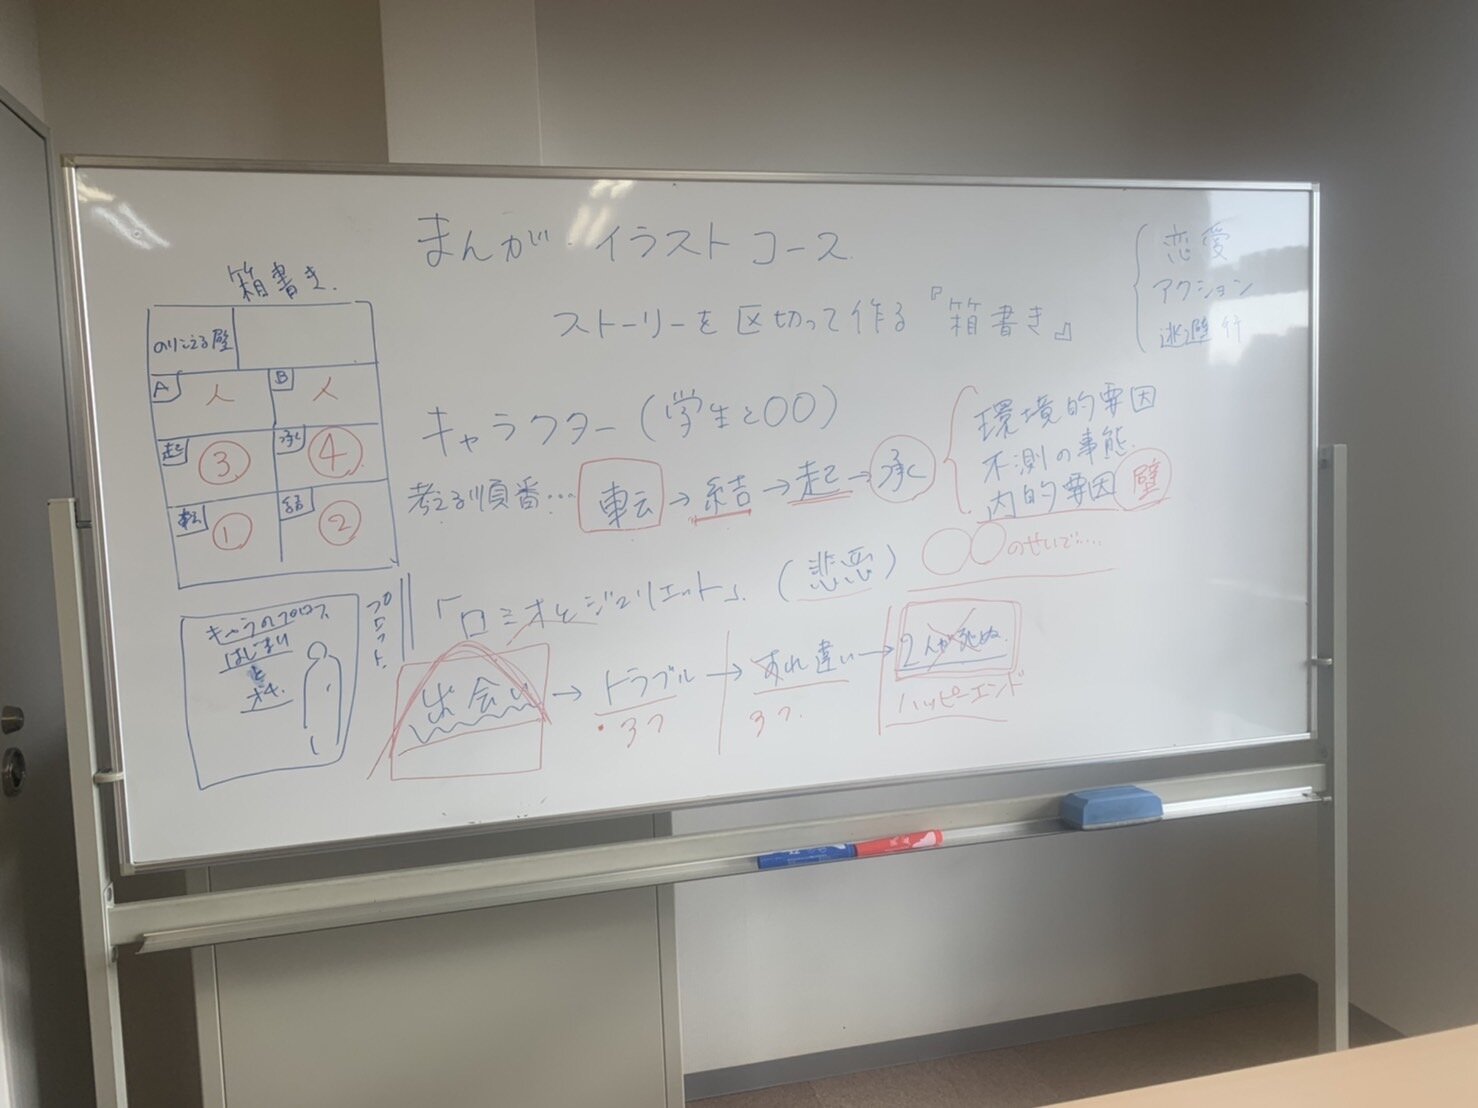 まんが・イラストコース
ストーリーを区切って作る『箱書き』
恋愛
アクション
逃避行
箱書き.
のりこえる壁
A 人 B 人
起 ③ 承 ④
転 ① 結 ②
キャラクター(学生と〇〇)
考える順番… 転→結→起→承
環境的要因
不測の事態.
内的要因 壁
〇〇のせいで……
「ロミオとジュリエット」(悲恋)
出会い→トラブル→すれ違い→2人が死ぬ.
3つ 3つ.
ハッピーエンド
プロット.
キャラのプロフ
はじまり
と
オチ.